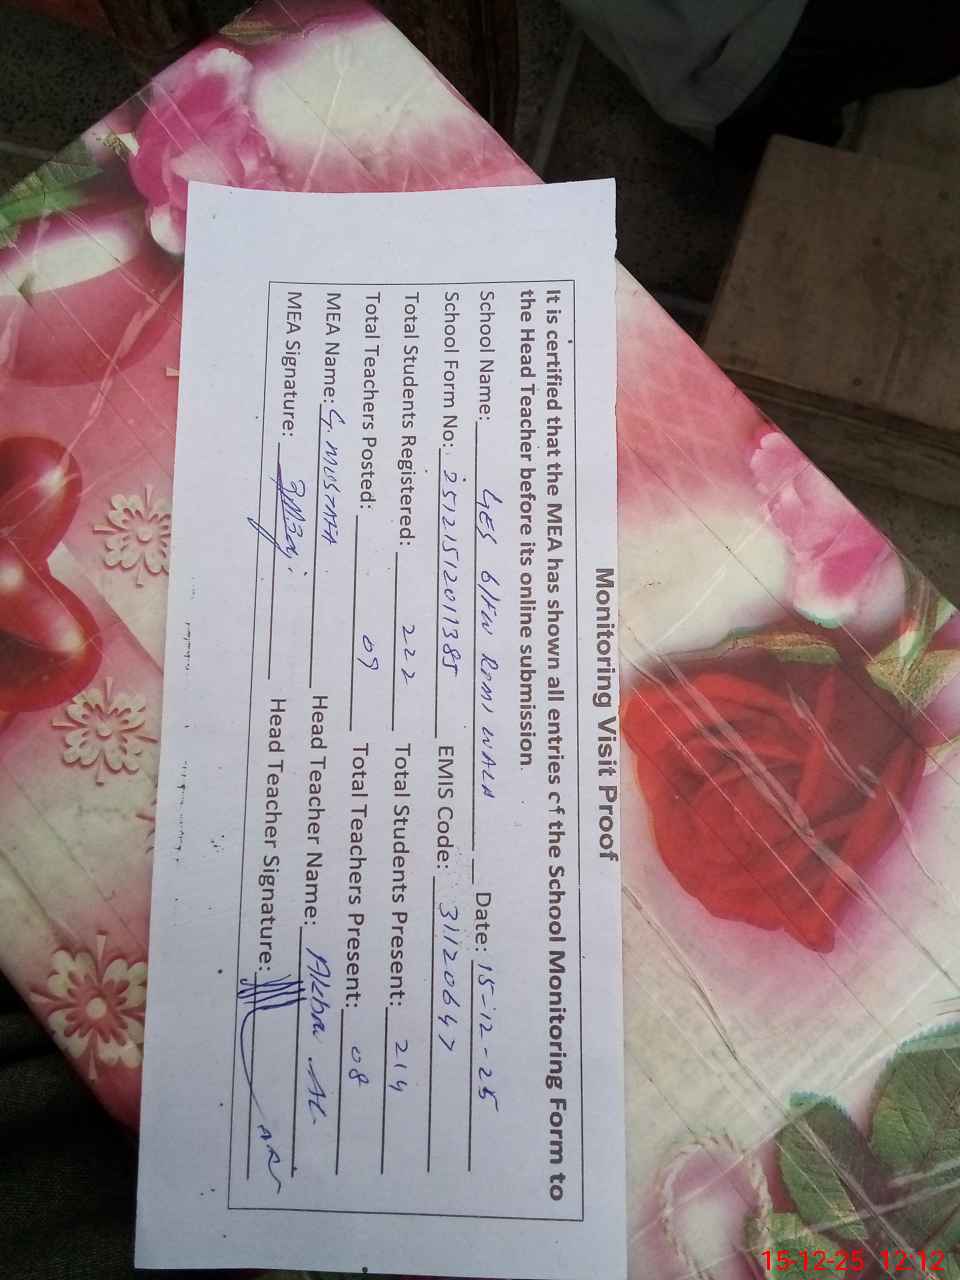 Monitoring Visit Proof
It is certified that the MEA has shown all entries of the School Monitoring Form to
the Head Teacher before its online submission.
School Name: GES 6/KW ROMI WALA Date: 15-12-25
School Form No: 25121512011385 EMIS Code: 31120647
Total Students Registered: 222 Total Students Present: 214
Total Teachers Posted: 09 Total Teachers Present: 08
MEA Name: G. MUSTAFA Head Teacher Name: Akbar
MEA Signature: Head Teacher Signature:
15-12-25 12:12